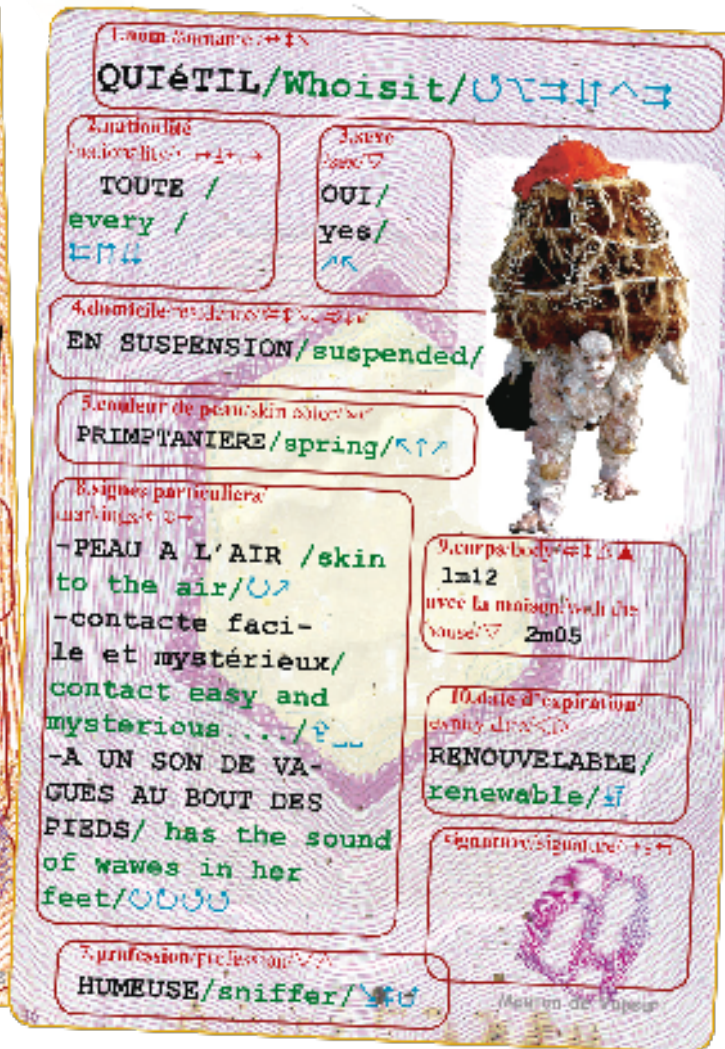 1.nom /surname /↔↕↘
QUIéTIL/Whoisit/
2.nationalité
/nationality/
TOUTE /
every /
⇇⇈⇊
3.sexe
/sex/▽
OUI/
yes/
↗↖
4.domicile/residence/
EN SUSPENSION/suspended/
5.couleur de peau/skin color/
PRIMPTANIERE/spring/↖↑↗
8.signes particuliers/
markings/
-PEAU A L'AIR /skin
to the air/↻↗
-contacte faci-
le et mystérieux/
contact easy and
mysterious..../
-A UN SON DE VA-
GUES AU BOUT DES
PIEDS/ has the sound
of wawes in her
feet/↻↻↺↺
9.corps/body/
1m12
avec la maison/with the
house/▽ 2m05
10.date d'expiration/
expiry date/
RENOUVELABLE/
renewable/
signature/signature/
7.profession/profession/
HUMEUSE/sniffer/
Maison de Vapeur
36